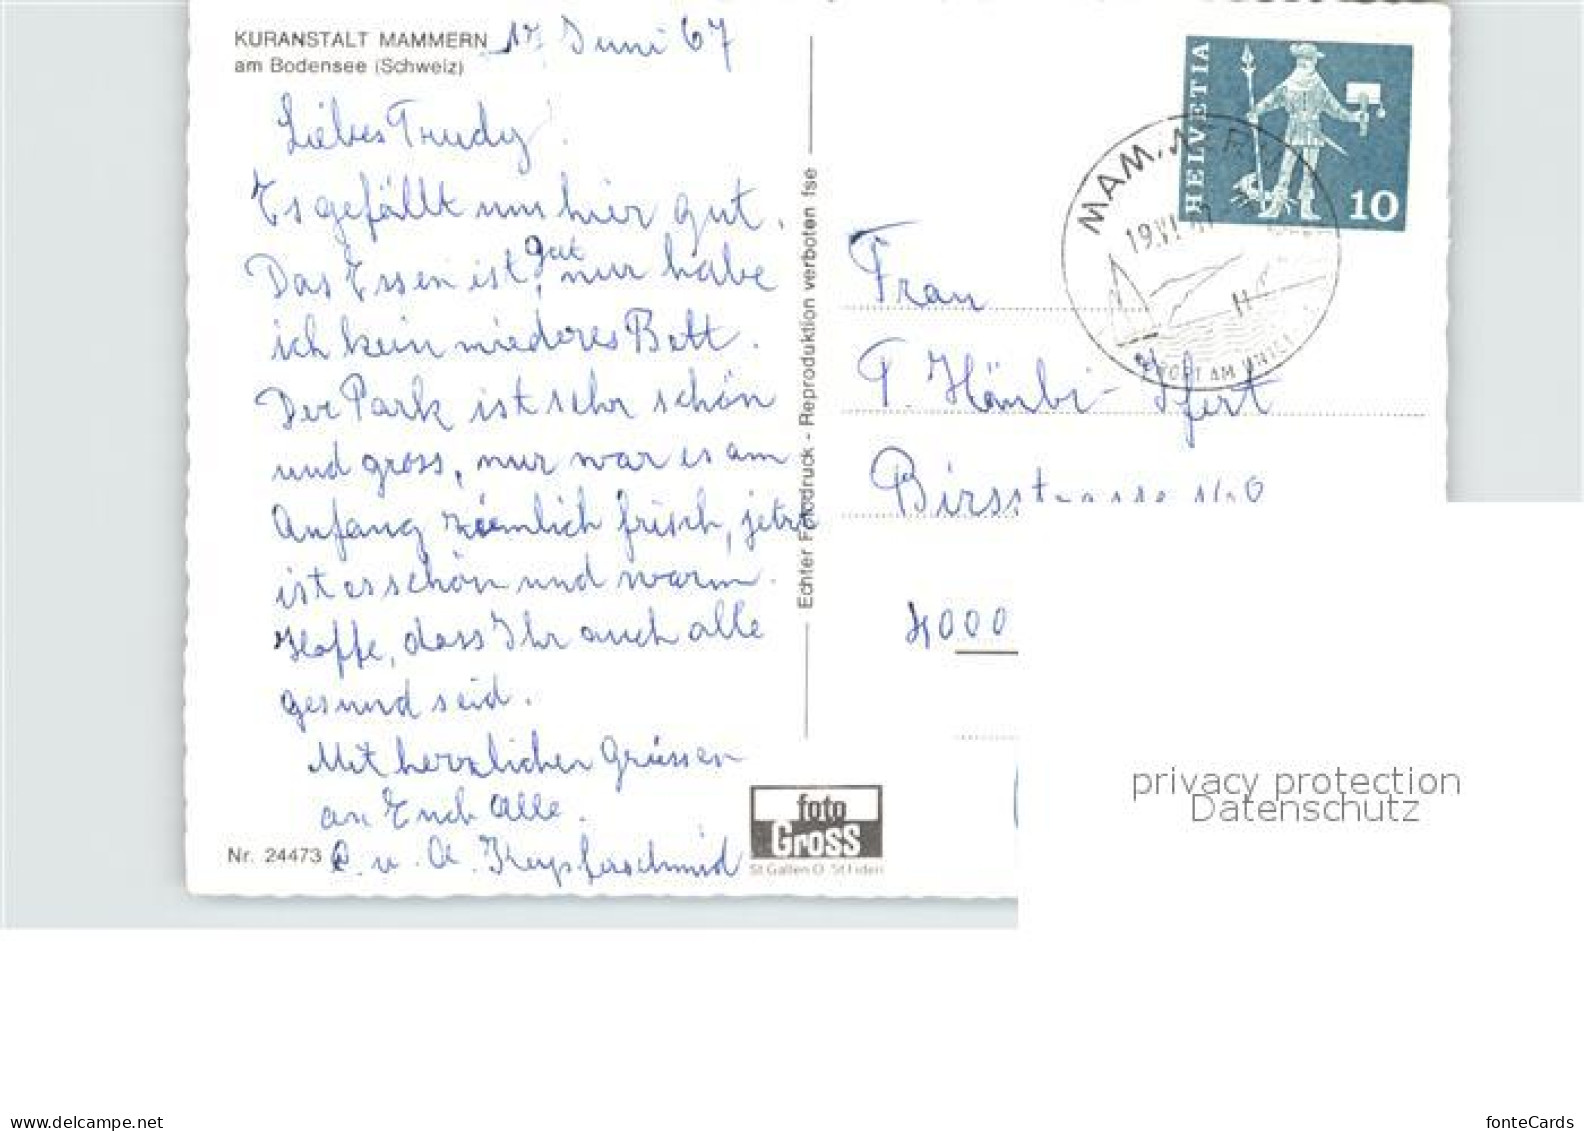 KURANSTALT MAMMERN
am Bodensee (Schweiz)
17. Juni 67
Liebes Trudy!
Es gefällt uns hier gut.
Das Essen ist gut, nur habe
ich kein niederes Bett.
Der Park ist sehr schön
und gross, nur war es am
Anfang ziemlich frisch, jetzt
ist es schön und warm.
Hoffe, dass Ihr auch alle
gesund seid.
Mit herzlichen Grüssen
an Euch alle.
u. A. Kupferschmid
Nr. 24473
Echter Fotodruck - Reproduktion verboten fse
foto
Gross
St Gallen O. St Fiden
HELVETIA
10
MAMMERN
19.VI.67
Frau
T. Hänbi-Ifert
Birsstrasse
4000
privacy protection
Datenschutz
www.fontecards.net
fonteCards